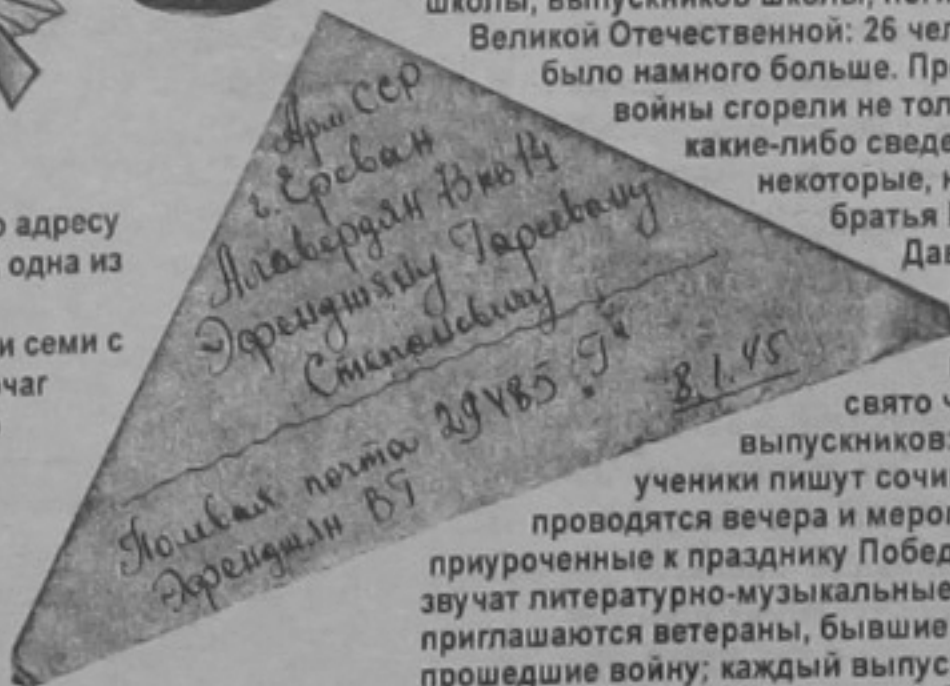 школы, выпускников школы,
Великой Отечественной: 26 чел
было намного больше. Пр
войны сгорели не тол
какие-либо сведе
некоторые, н
братья
Дав
о адресу
одна из
и семи с
чаг
Арм ССР
г. Ереван
Алавердян 13 кв 14
Эфенджяну Гаревану
Степановичу
Полевая почта 29485 "Г"
8.1.45
Эфенджян ВГ
свято ч
выпускников:
ученики пишут сочи
проводятся вечера и мероп
приуроченные к празднику Побед
звучат литературно-музыкальные
приглашаются ветераны, бывшие
прошедшие войну; каждый выпус